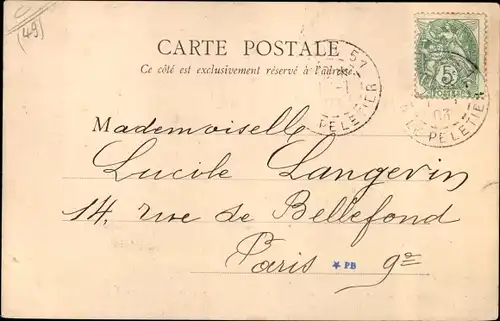 (49)
CARTE POSTALE
Ce côté est exclusivement réservé à l'adresse.
51
PELETIER
5
POSTES
03
LE PELETIER
Mademoiselle
Lucile Langevin
14, rue de Bellefond
Paris 9e
★ PB